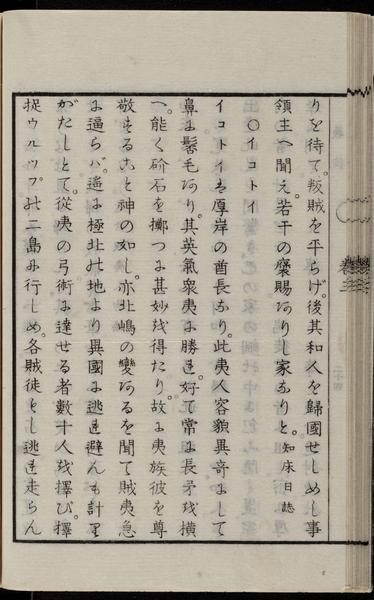 りを待て。叛賊を平らげ。後其和人を歸國せしめし事
領主へ聞え。若干の褒賜ありし家なりと。知床日誌
〇イコトイ
イコトイは厚岸の酋長なり。此夷人容貌異奇にして
鼻に髯毛あり。其英氣衆夷に勝れ。好て常に長矛を横
へ。能く砕石を擲つに甚妙を得たり。故に夷族彼を尊
敬すること神の如し。亦北嶋の變あるを聞て賊夷急
に逼らバ。遙に極北の地より異國に逃れ避んも計り
がたしとて。從夷の弓術に達せる者數十人を擇び。擇
捉ウルップの二島に行しめ。各賊徒もし逃れ走らん